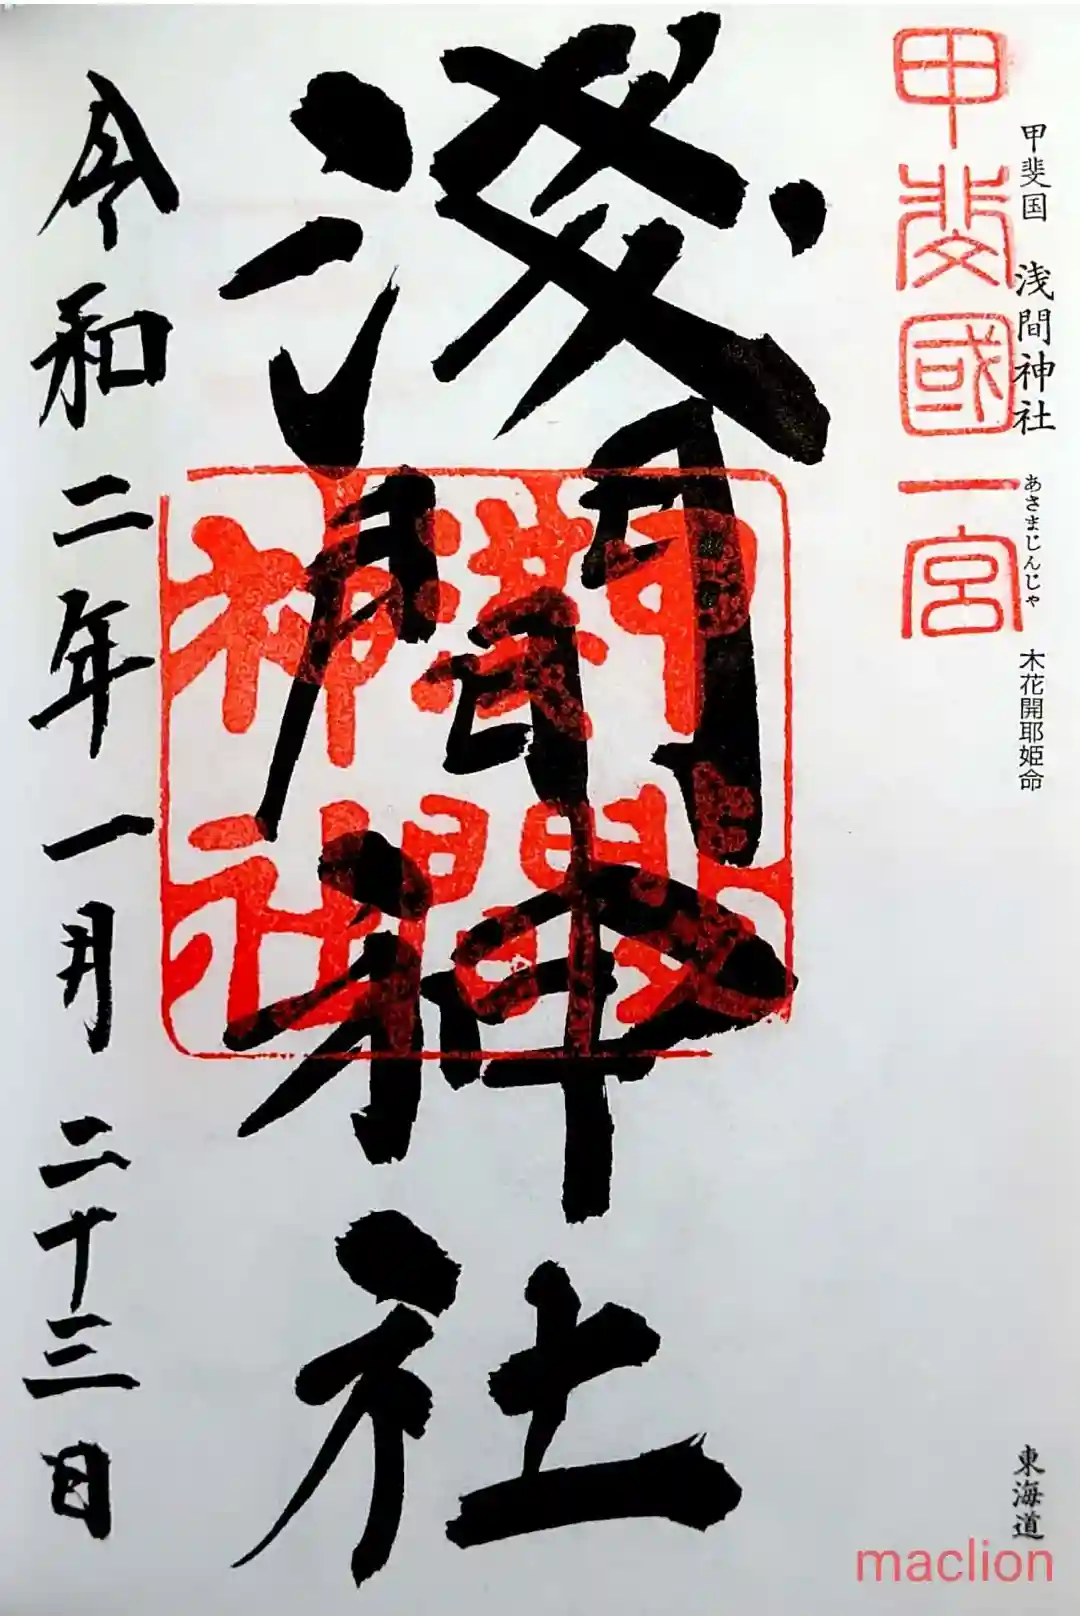 甲斐国 浅間神社 あさまじんじゃ 木花開耶姫命
東海道
甲斐國一宮
淺間神社
淺間
神社
令和二年一月二十三日
maclion